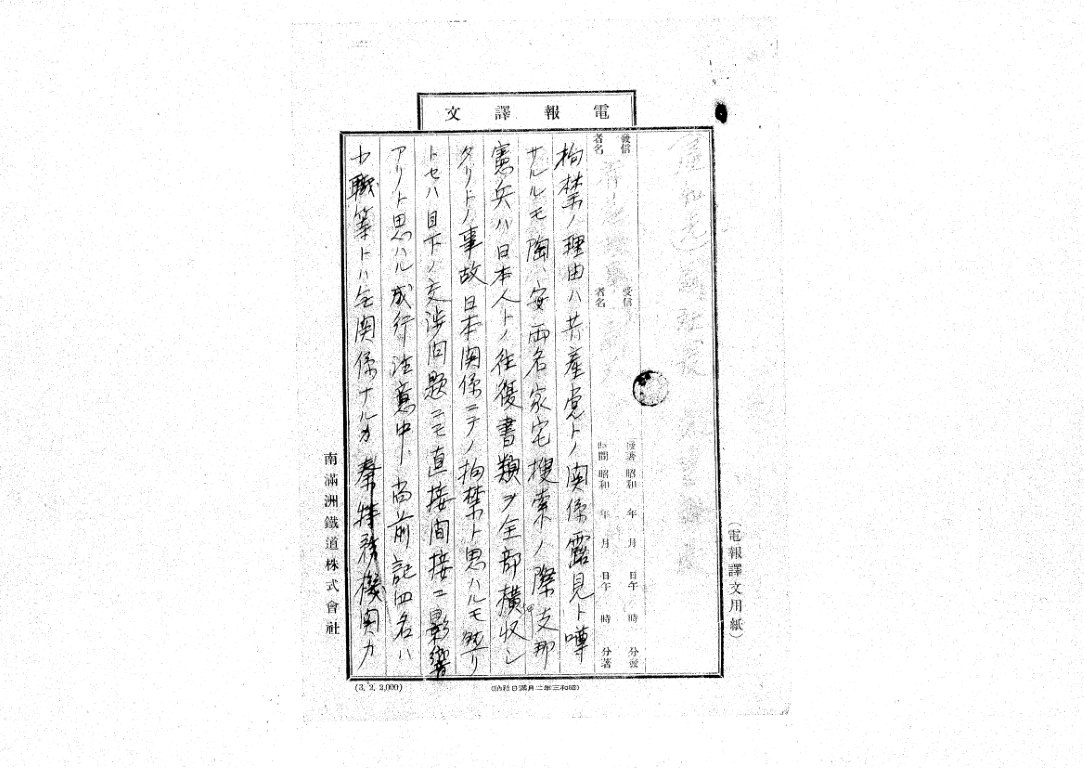 電報譯文
發信者名
受信者名
發著時間 昭和 年 月 日午 時 分發
昭和 年 月 日午 時 分著
拘禁ノ理由ハ共産党トノ関係露見ト噂
サルルモ陶、安両名家宅捜索ノ際支那
憲兵ハ日本人トノ往復書類ヲ全部横収シ
タリトノ事故日本関係ニテノ拘禁ト思ハルモ
トセハ目下ノ交渉問題ニモ直接間接ニ影響
アリト思ハル成行注意中、尚前記四名ハ
職等トハ全関係ナルカ秦特務機関カ
南滿洲鐵道株式會社
(電報譯文用紙)
(3. 2. 2,000)
(昭和三年二月滿日社納)